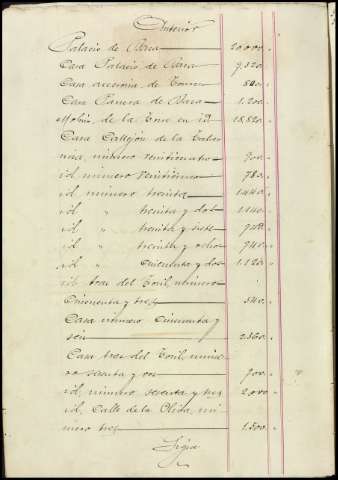 Anterior
Palacio de Baena 20.000.
Casa Palacio de Baena 7.520.
Casa accesoria de Torre 800.
Casa Panera de Baena 1.200.
Molino de la Torre en id 18.820.
Casa Callejón de la Taber
na, número veinticuatro 900.
id número veinticinco 780.
id número treinta 1.440.
id " treinta y dos 1.140.
id " treinta y siete 908.
id " treinta y ocho 940.
id " cincuenta y dos 1.120.
id tras del Toril, número
cincuenta y tres 540.
Casa número cincuenta y
seis 2.360.
Casa tras del Toril, núme
ro sesenta y 700.
id, número sesenta y tres 2.000
id, Calle de la Oliva, nú
mero tres 1.500.
Sigue